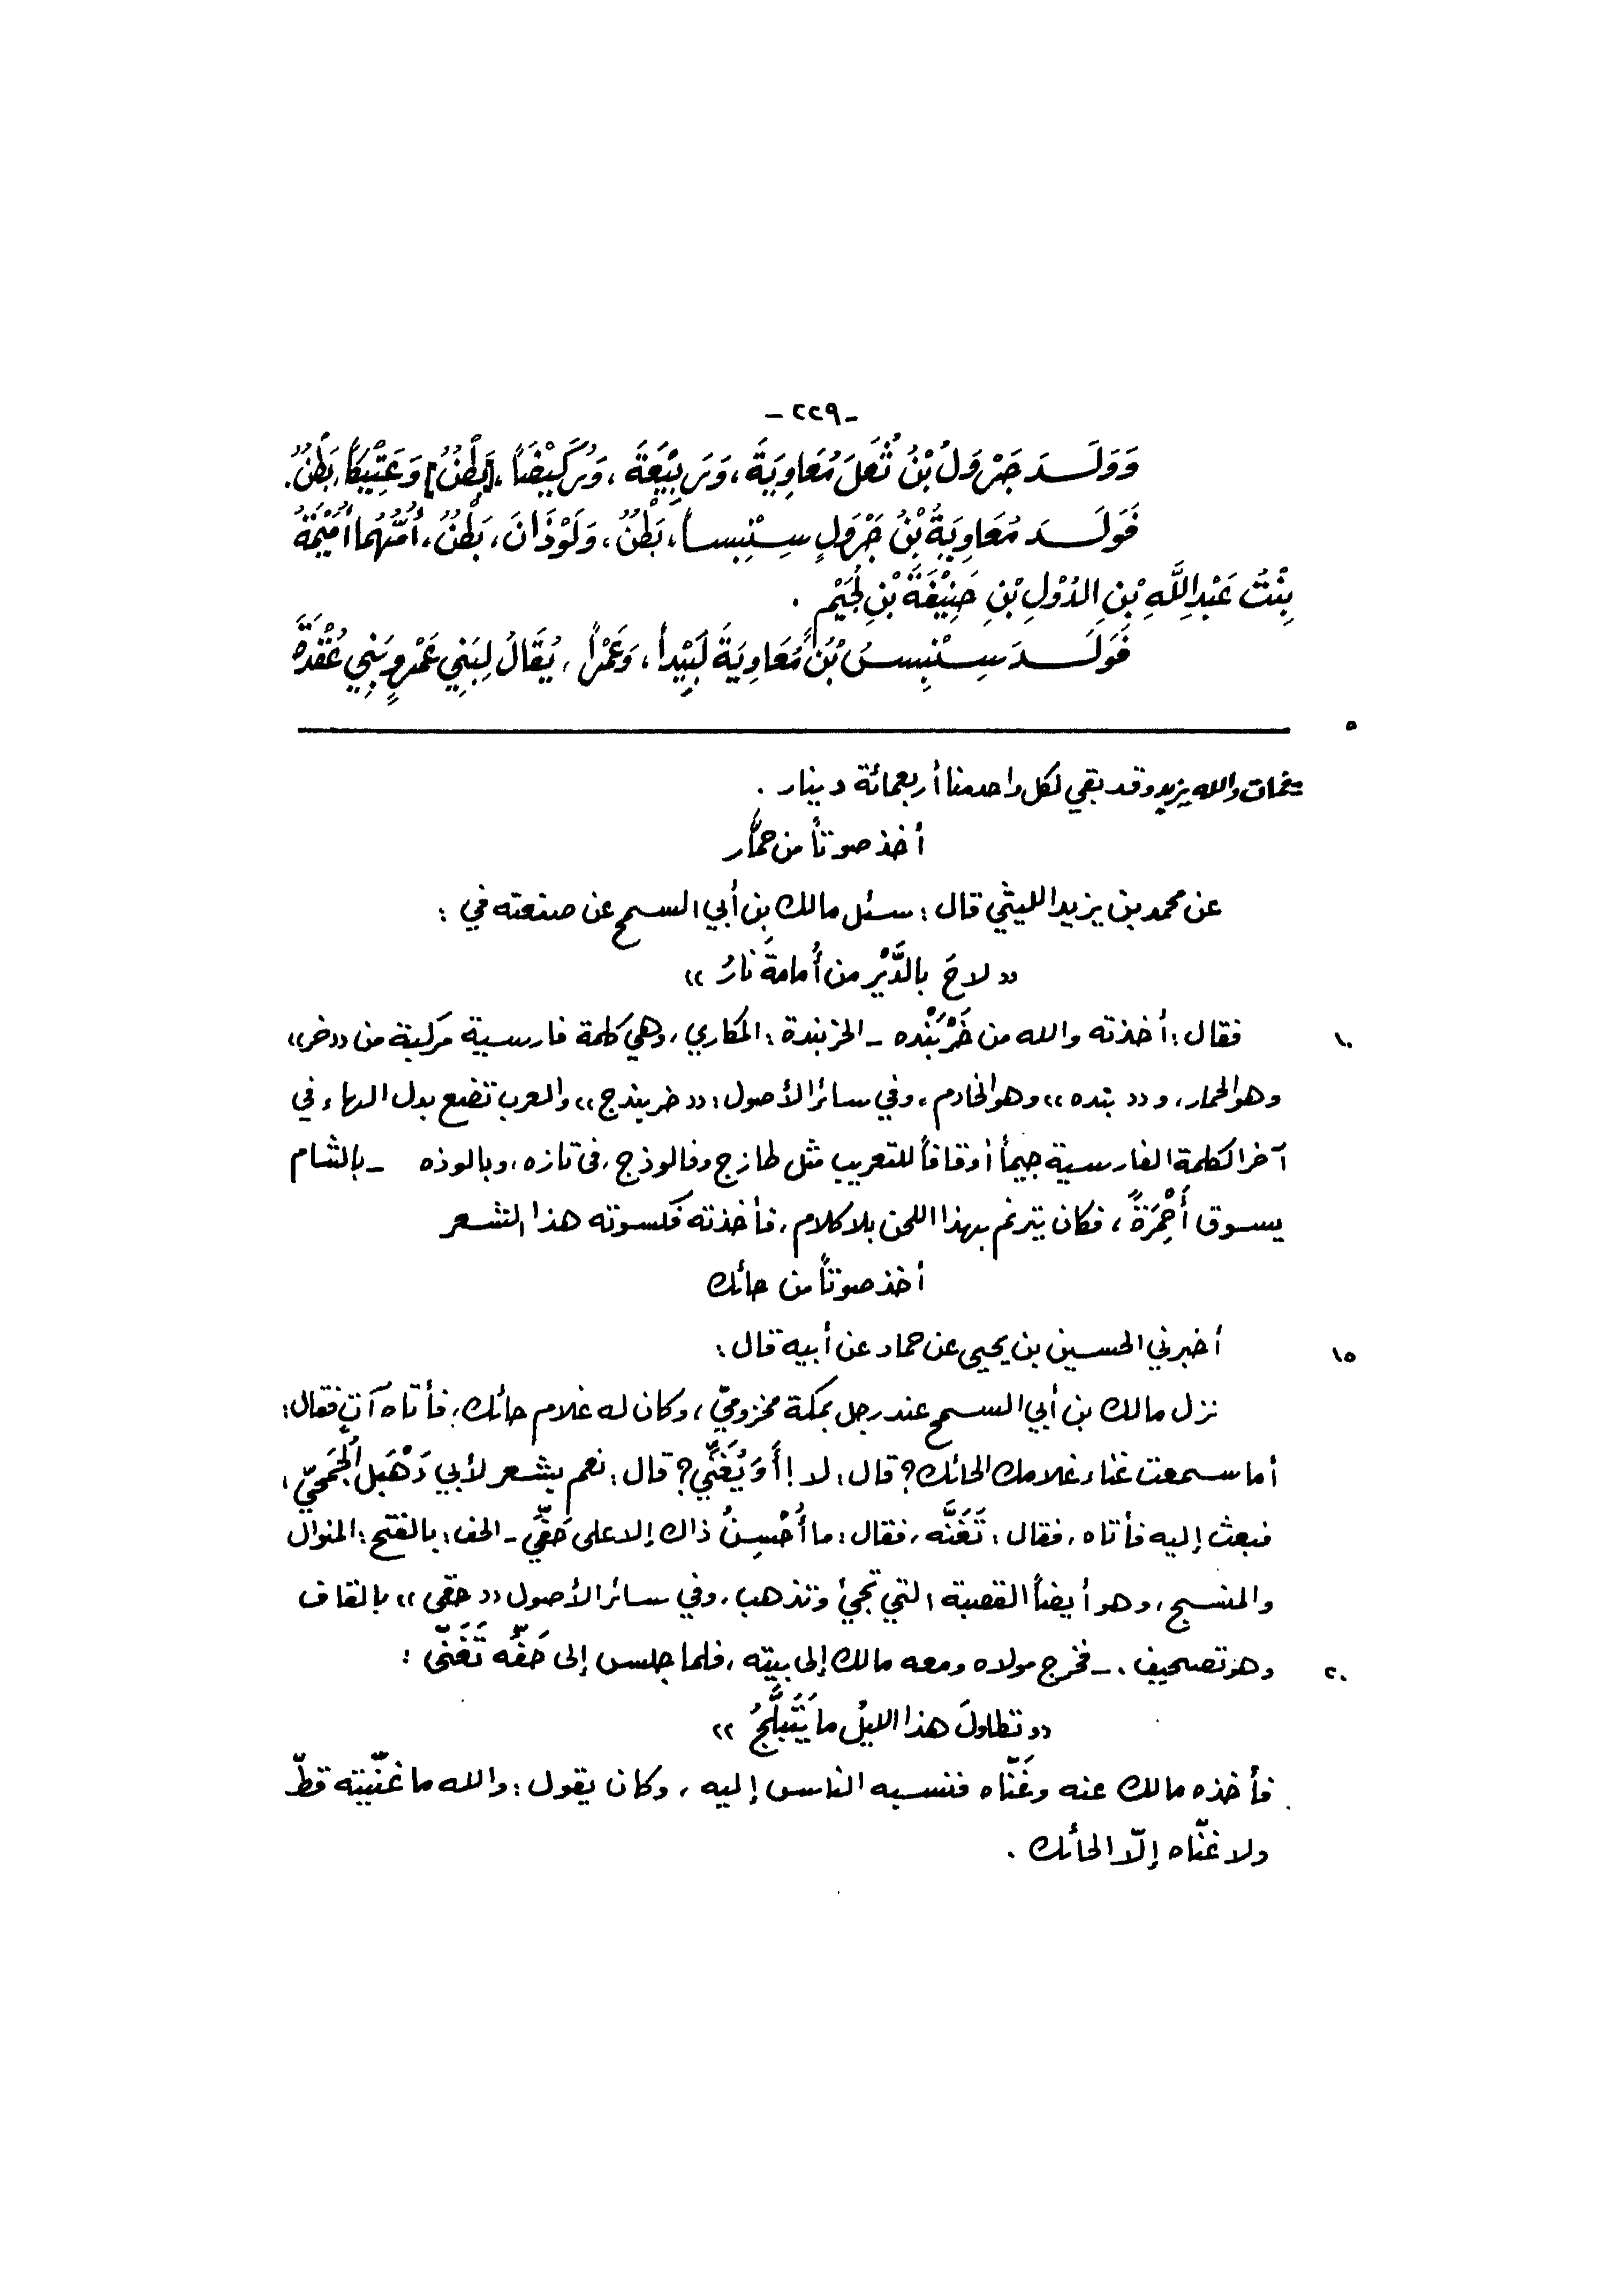 - ٢٢٩ -
وَوَلَـدَ جَرْوَلُ بْنُ ثُعَلَ مُعَاوِيَةَ، وَرَبِيْعَةَ، وَرُكَيْضَاً، [بَطْنٌ] وَعَتِيْكَاً، بَطْنٌ.
فَوَلَـدَ مُعَاوِيَةُ بْنُ جَرْوَلٍ سِنْبِساً، بَطْنٌ، وَلَوْذَانَ، بَطْنٌ، أُمُّهُما أُمَيْمَةُ
بِنْتُ عَبْدِ اللَّهِ بْنِ الدُّوْلِ بْنِ حَنِيْفَةَ بْنِ لُجَيْمٍ.
فَوَلَـدَ سِنْبِسُ بْنُ مُعَاوِيَةَ لَبِيْداً، وَعَمْراً، يُقَالُ لِبَنِي عَمْرٍو بَنِي عُقْدَةَ
٥
= فمات والله يزيد وقد بقي لكل واحد منا أربعمائة دينار.
أخذ صوتاً من حمَّار
عن محمد بن يزيد الليثي قال: سئل مالك بن أبي السمح عن صنعته في:
«لاحَ بالدَّيْرِ من أُمامةَ نارُ»
١٠ فقال: أخذته والله من خَرْبَنْده - الخربندة: المكاري، وهي كلمة فارسية مركبة من «خر»
وهو الحمار، و «بنده» وهو الخادم، وفي سائر الأصول: «خربندج» والعرب تضع بدل الهاء في
آخر الكلمة الفارسية جيماً أو قافاً للتعريب مثل طازج وفالوذج، في تازه، وبالوذه - بالشام
يسوق أَحْمِرَةً، فكان يترنم بهذا اللحن بلا كلام، فأخذته فكسوته هذا الشعر
أخذ صوتاً من حائك
١٥ أخبرني الحسين بن يحيى عن حماد عن أبيه قال:
نزل مالك بن أبي السمح عند رجل بمكة مخزوميّ، وكان له غلام حائك، فأتاه آتٍ فقال:
أما سمعت غناء غلامك الحائك؟ قال: لا! أَوَ يُغَنّي؟ قال: نعم بشعر لأبي دَهْبَل الجُمَحيّ،
فبعث إليه فأتاه، فقال: تَغَنَّه، فقال: ما أُحْسِنُ ذاك إلا على حَفّي - الحف: بالفتح: المنوال
والمنسج، وهو أيضاً القصبة التي تجيء وتذهب، وفي سائر الأصول «حقي» بالقاف
٢٠ وهو تصحيف. - فخرج مولاه ومعه مالك إلى بيته، فلما جلس إلى حَفّه تَغَنّى:
«تطاولَ هذا الليلُ ما يَتَبَلَّجُ»
فأخذه مالك عنه وغَنّاه فنسبه الناس إليه، وكان يقول: والله ما غنّيته قطّ
ولا غنّاه إلّا الحائك.